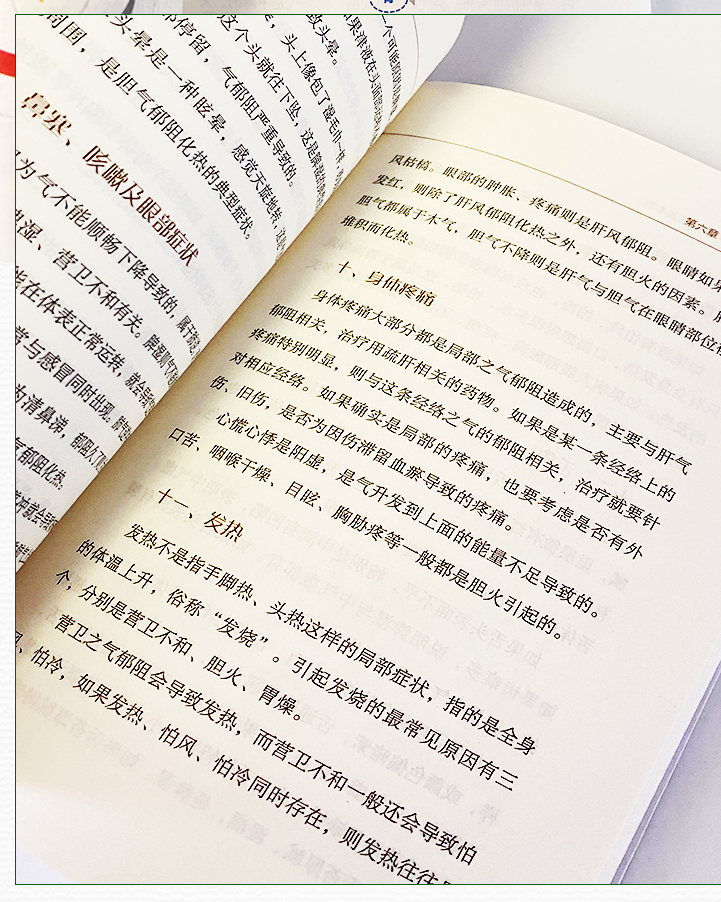 一个可能
致头晕。
，头上像包了湿毛巾一样，
这个头就往下坠，这是
郁停留，气郁阻严重导致的。
头晕是一种眩晕，感觉天旋地转，这
周围，是胆气郁阻化热的典型症状。
鼻塞、咳嗽及眼部症状
因为气不能顺畅下降导致的，属于
湿、营卫不和有关。
能在体表正常运转，就会
常与感冒同时出现。
为清鼻涕，
气郁阻化热。
第六章
风枯槁。眼部的肿胀、疼痛则是肝风郁阻。眼睛如果
发红，则除了肝风郁阻化热之外，还有胆火的因素。
胆气都属于木气，胆气不降则是肝气与胆气在眼睛部位
堆积而化热。
十、身体疼痛
身体疼痛大部分都是局部之气郁阻造成的，主要与肝气
郁阻相关，治疗用疏肝相关的药物。如果是某一条经络上的
疼痛特别明显，则与这条经络之气的郁阻相关，治疗就要针
对相应经络。如果确实是局部的疼痛，也要考虑是否有外
伤、旧伤，是否为因伤滞留血瘀导致的疼痛。
心慌心悸是阳虚，是气升发到上面的能量不足导致的。
口苦、咽喉干燥、目眩、胸胁疼等一般都是胆火引起的。
十一、发热
发热不是指手脚热、头热这样的局部症状，指的是全身
的体温上升，俗称“发烧”。引起发烧的最常见原因有三
个，分别是营卫不和、胆火、胃燥。
营卫之气郁阻会导致发热，而营卫不和一般还会导致怕
风、怕冷，如果发热、怕风、怕冷同时存在，则发热往往